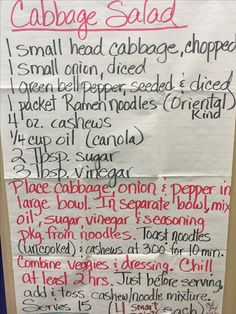 Cabbage Salad
1 small head cabbage, chopped
1 small onion, diced
1 green bell pepper, seeded & diced
1 packet Ramen noodles (Oriental
Kind
4 oz. cashews
1/4 cup oil (canola)
2 Tbsp. sugar
3 Tbsp. vinegar
Place cabbage, onion & pepper in
large bowl. In separate bowl, mix
oil, sugar vinegar & seasoning
pkg from noodles. Toast noodles
(uncooked) & cashews at 300° for 10 min.
Combine veggies & dressing. Chill
at least 2 hrs. Just before serving,
add & toss cashew/noodle mixture.
Serves 15